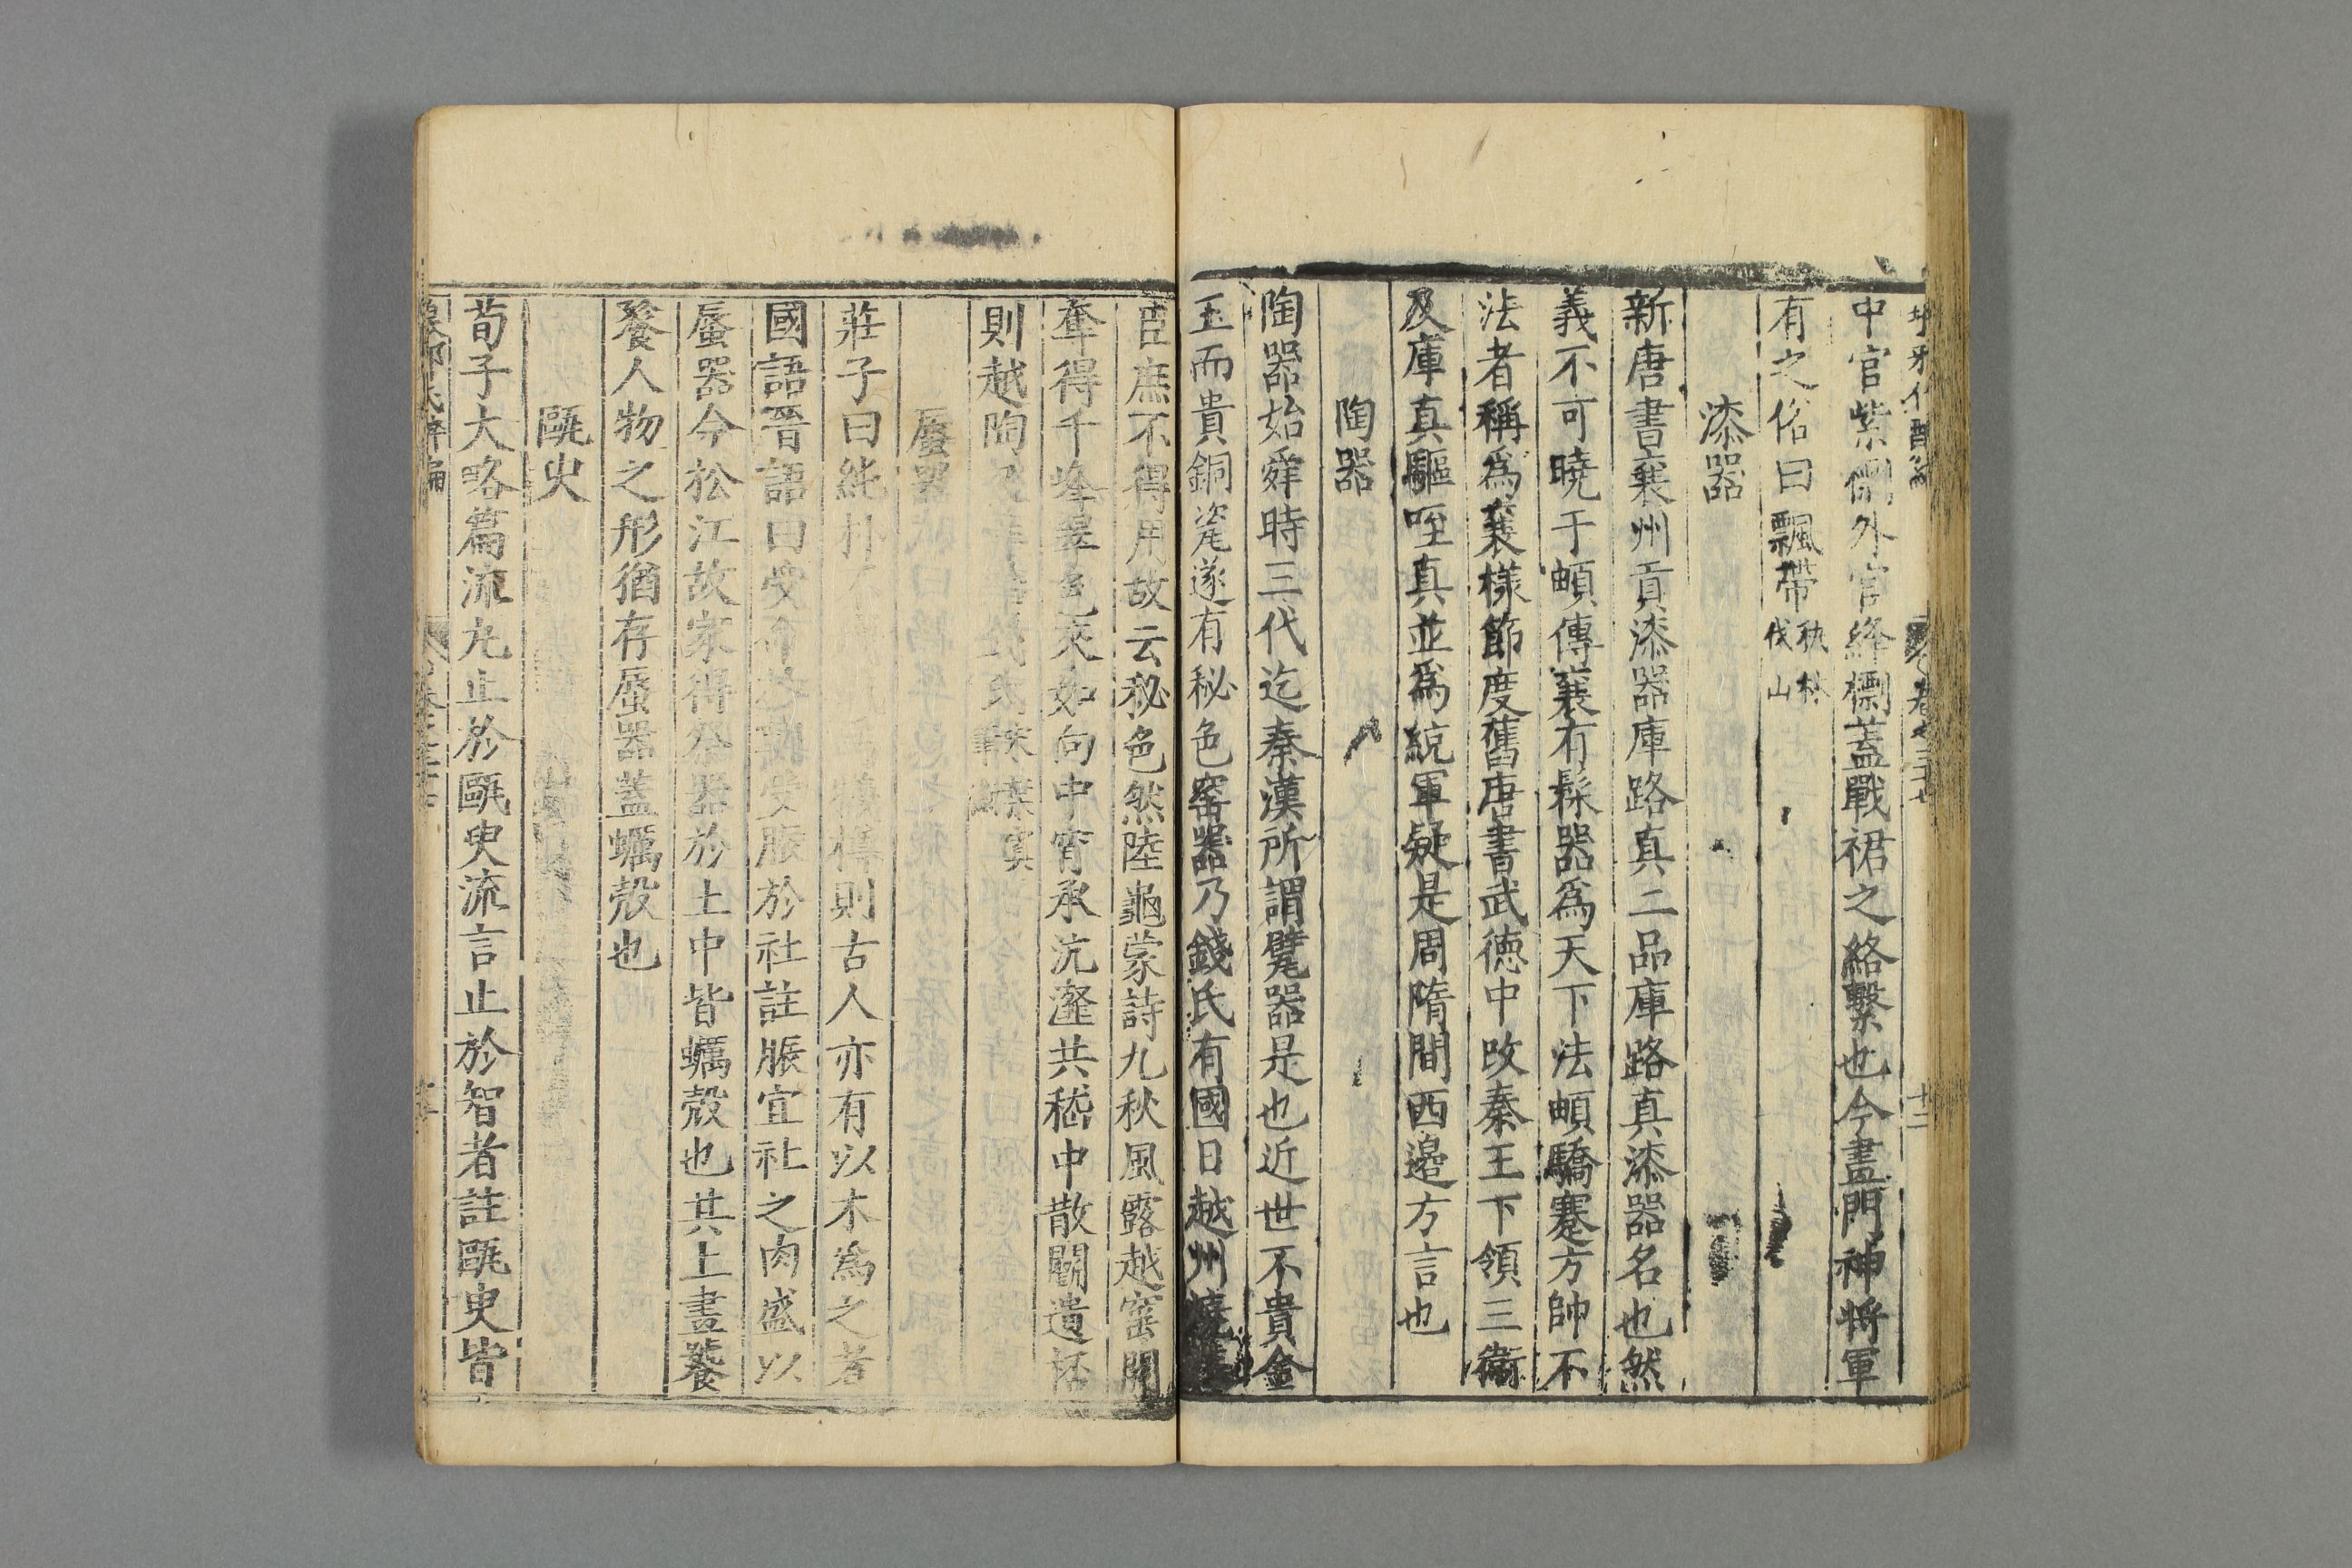 中官紫𧝓外官絳標蓋戰裙之絡繫也今畫門神將軍
有之俗曰飄帶秇林伐山
漆器
新唐書襄州貢漆器庫路真二品庫路真漆器名也然
義不可曉于頔傳襄有髹器爲天下法頔驕蹇方帥不
法者稱爲襄樣節度舊唐書武德中改秦王下領三衛
及庫真驅咥真並爲統軍疑是周隋間西邊方言也
陶器
陶器始舜時三代迄秦漢所謂甓器是也近世不貴金
玉而貴銅瓷遂有秘色窑器乃錢氏有國日越州燒進
臣庶不得用故云秘色然陸龜蒙詩九秋風露越窑開
奪得千峰翠色來如向中宵承沆瀣共嵇中散鬭遺桮
則越陶
蜃器
莊子曰純朴不 犧樽則古人亦有以木爲之者
國語晉語曰受命於 受脤於社註脤宜社之肉盛以
蜃器今松江故家得祭器於土中皆蠣殼也其上畫饕
餮人物之形猶存蜃器蓋蠣殼也
甌臾
荀子大略篇流丸止於甌臾流言止於智者註甌臾皆